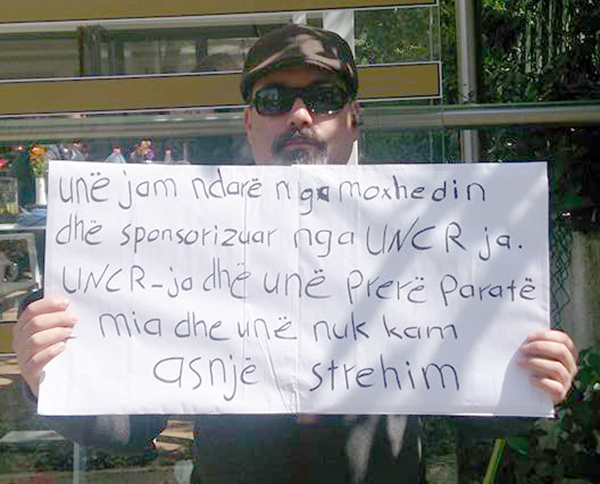 unë jam ndarë nga moxhedin
dhë sponsorizuar nga UNCR ja.
UNCR-ja dhë unë prerë paratë
mia dhe unë nuk kam
asnjë strehim